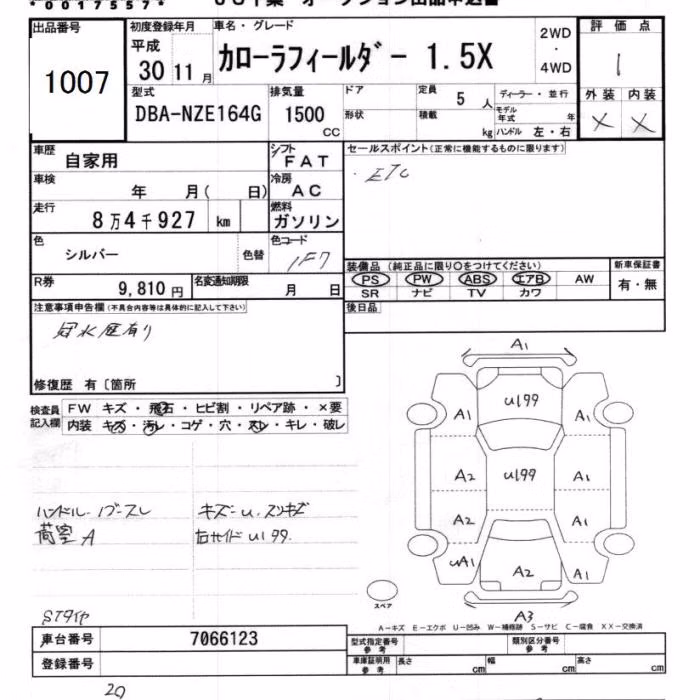 *0017557*
出品番号
1007
初度登録年月
平成
30 11 月
車名・グレード
カローラフィールダー 1.5X
2WD
・
4WD
評価点
1
外装 内装
× ×
型式
DBA-NZE164G
排気量
1500
CC
ドア
形状
定員
5 人
積載
kg
ディーラー・並行
モデル年式 年
ハンドル 左・右
車歴
自家用
シフト
FAT
車検
年 月( 日)
冷房
AC
走行
8万4千927 km
燃料
ガソリン
色
シルバー
色替
色コード
1F7
R券
9,810 円
名変通知期限
月 日
セールスポイント(正常に機能するものに限ります)
・ETC
装備品 (純正品に限り○をつけてください)
PS PW ABS エアB AW
SR ナビ TV カワ
新車保証書
有・無
後日品
注意事項申告欄(不具合内容等は具体的に記入して下さい)
冠水歴有り
修復歴 有〔箇所 〕
検査員
記入欄
FW キズ・飛石・ヒビ割・リペア跡・×要
内装 キズ・汚レ・コゲ・穴・スレ・キレ・破レ
荷室A
キズ・U・スリキズ
右サイドU199
STタイヤ
A1
U199
A1
A1
A2
U199
A1
A2
A1
UA1
A2
A1
A3
スペア
A−キズ E−エクボ U−凹み W−補修跡 S−サビ C−腐食 XX−交換済
車台番号
7066123
登録番号
型式指定番号
参考
類別区分番号
参考
車庫証明用
参考
長さ cm
幅 cm
高さ cm
20